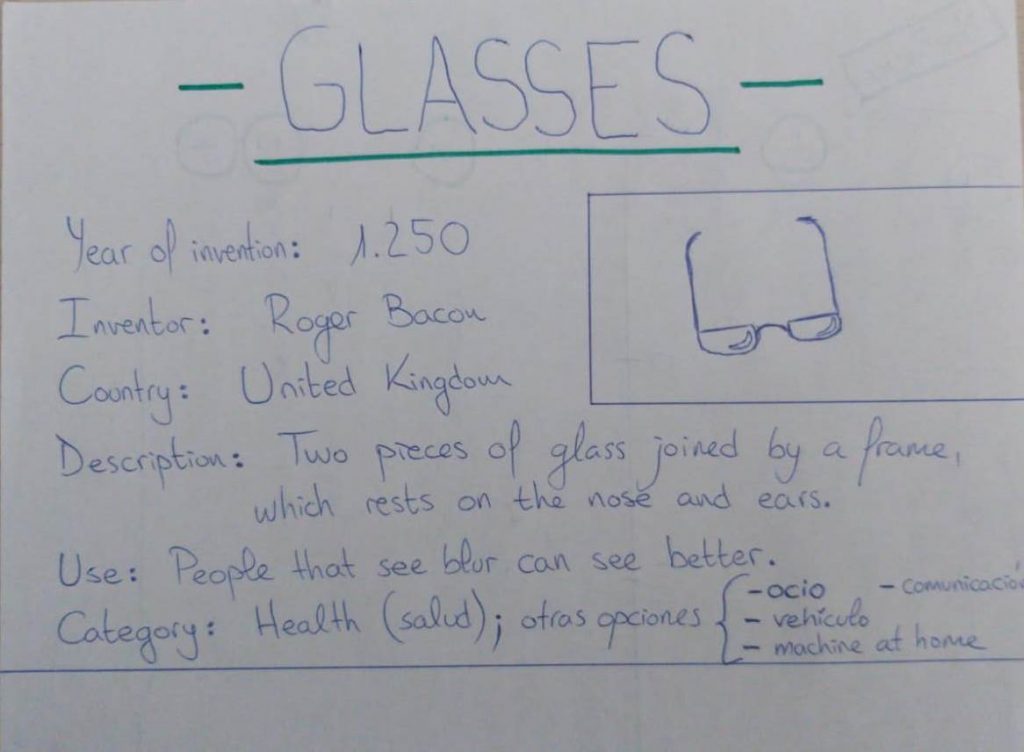 - GLASSES -
Year of invention: 1.250
Inventor: Roger Bacon
Country: United Kingdom
Description: Two pieces of glass joined by a frame,
which rests on the nose and ears.
Use: People that see blur can see better.
Category: Health (salud); otras opciones { -ocio - comunicación
- vehículo
- machine at home